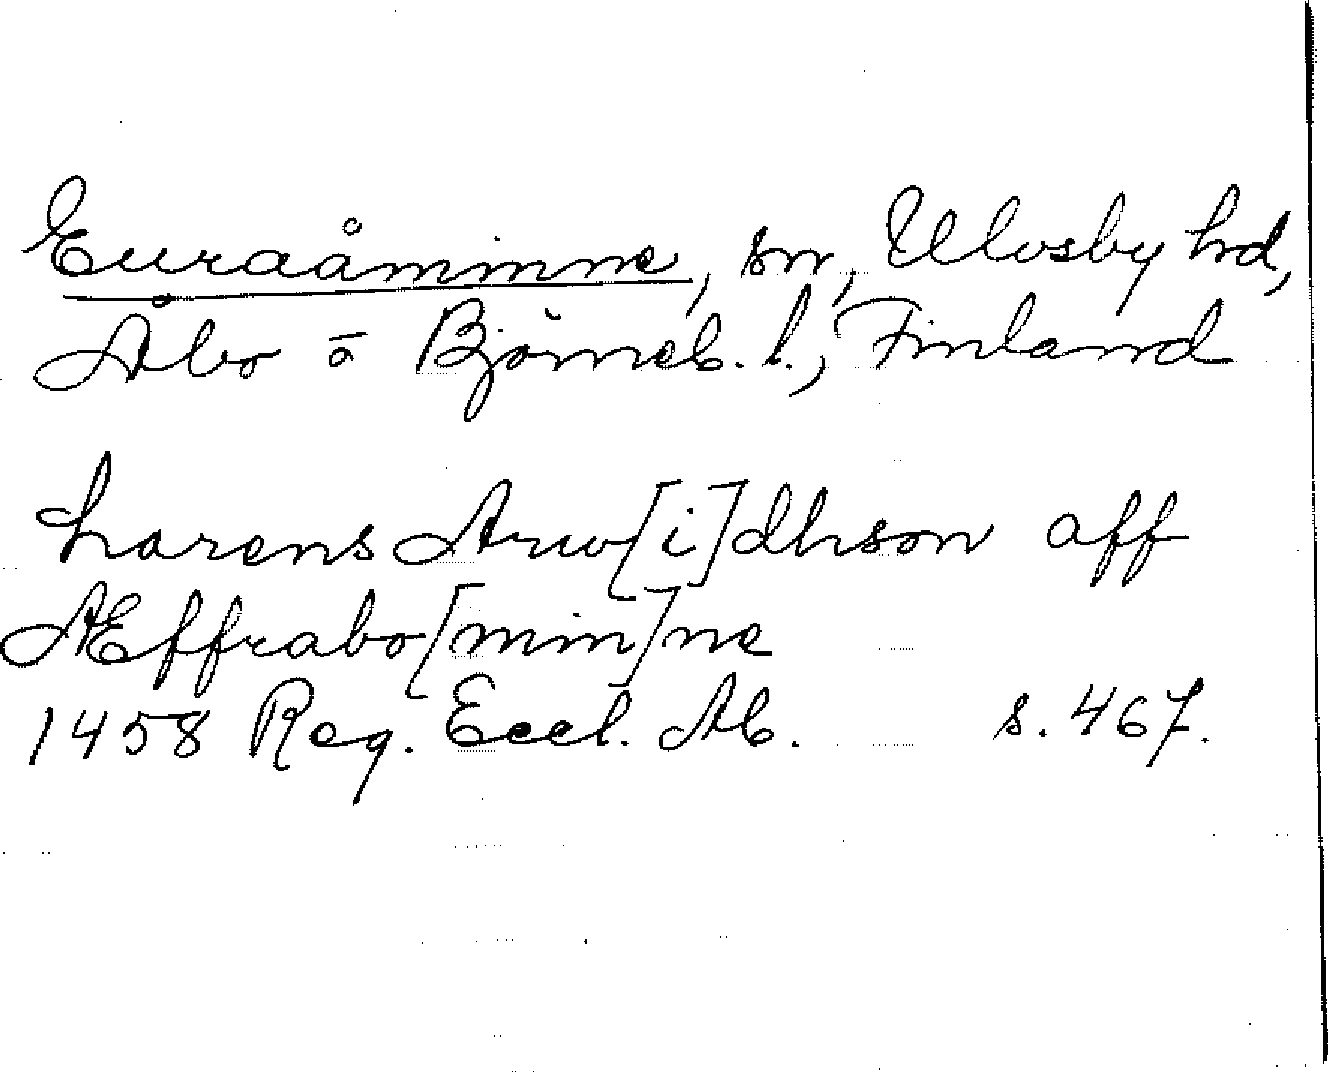 Euraåminne, sn, Ulvsby hd,
Åbo o Björneb. l., Finland
Larens Arw[i]dhson aff
Æffrabo[min]ne
1458 Reg. Eccl. Ab. s. 467.